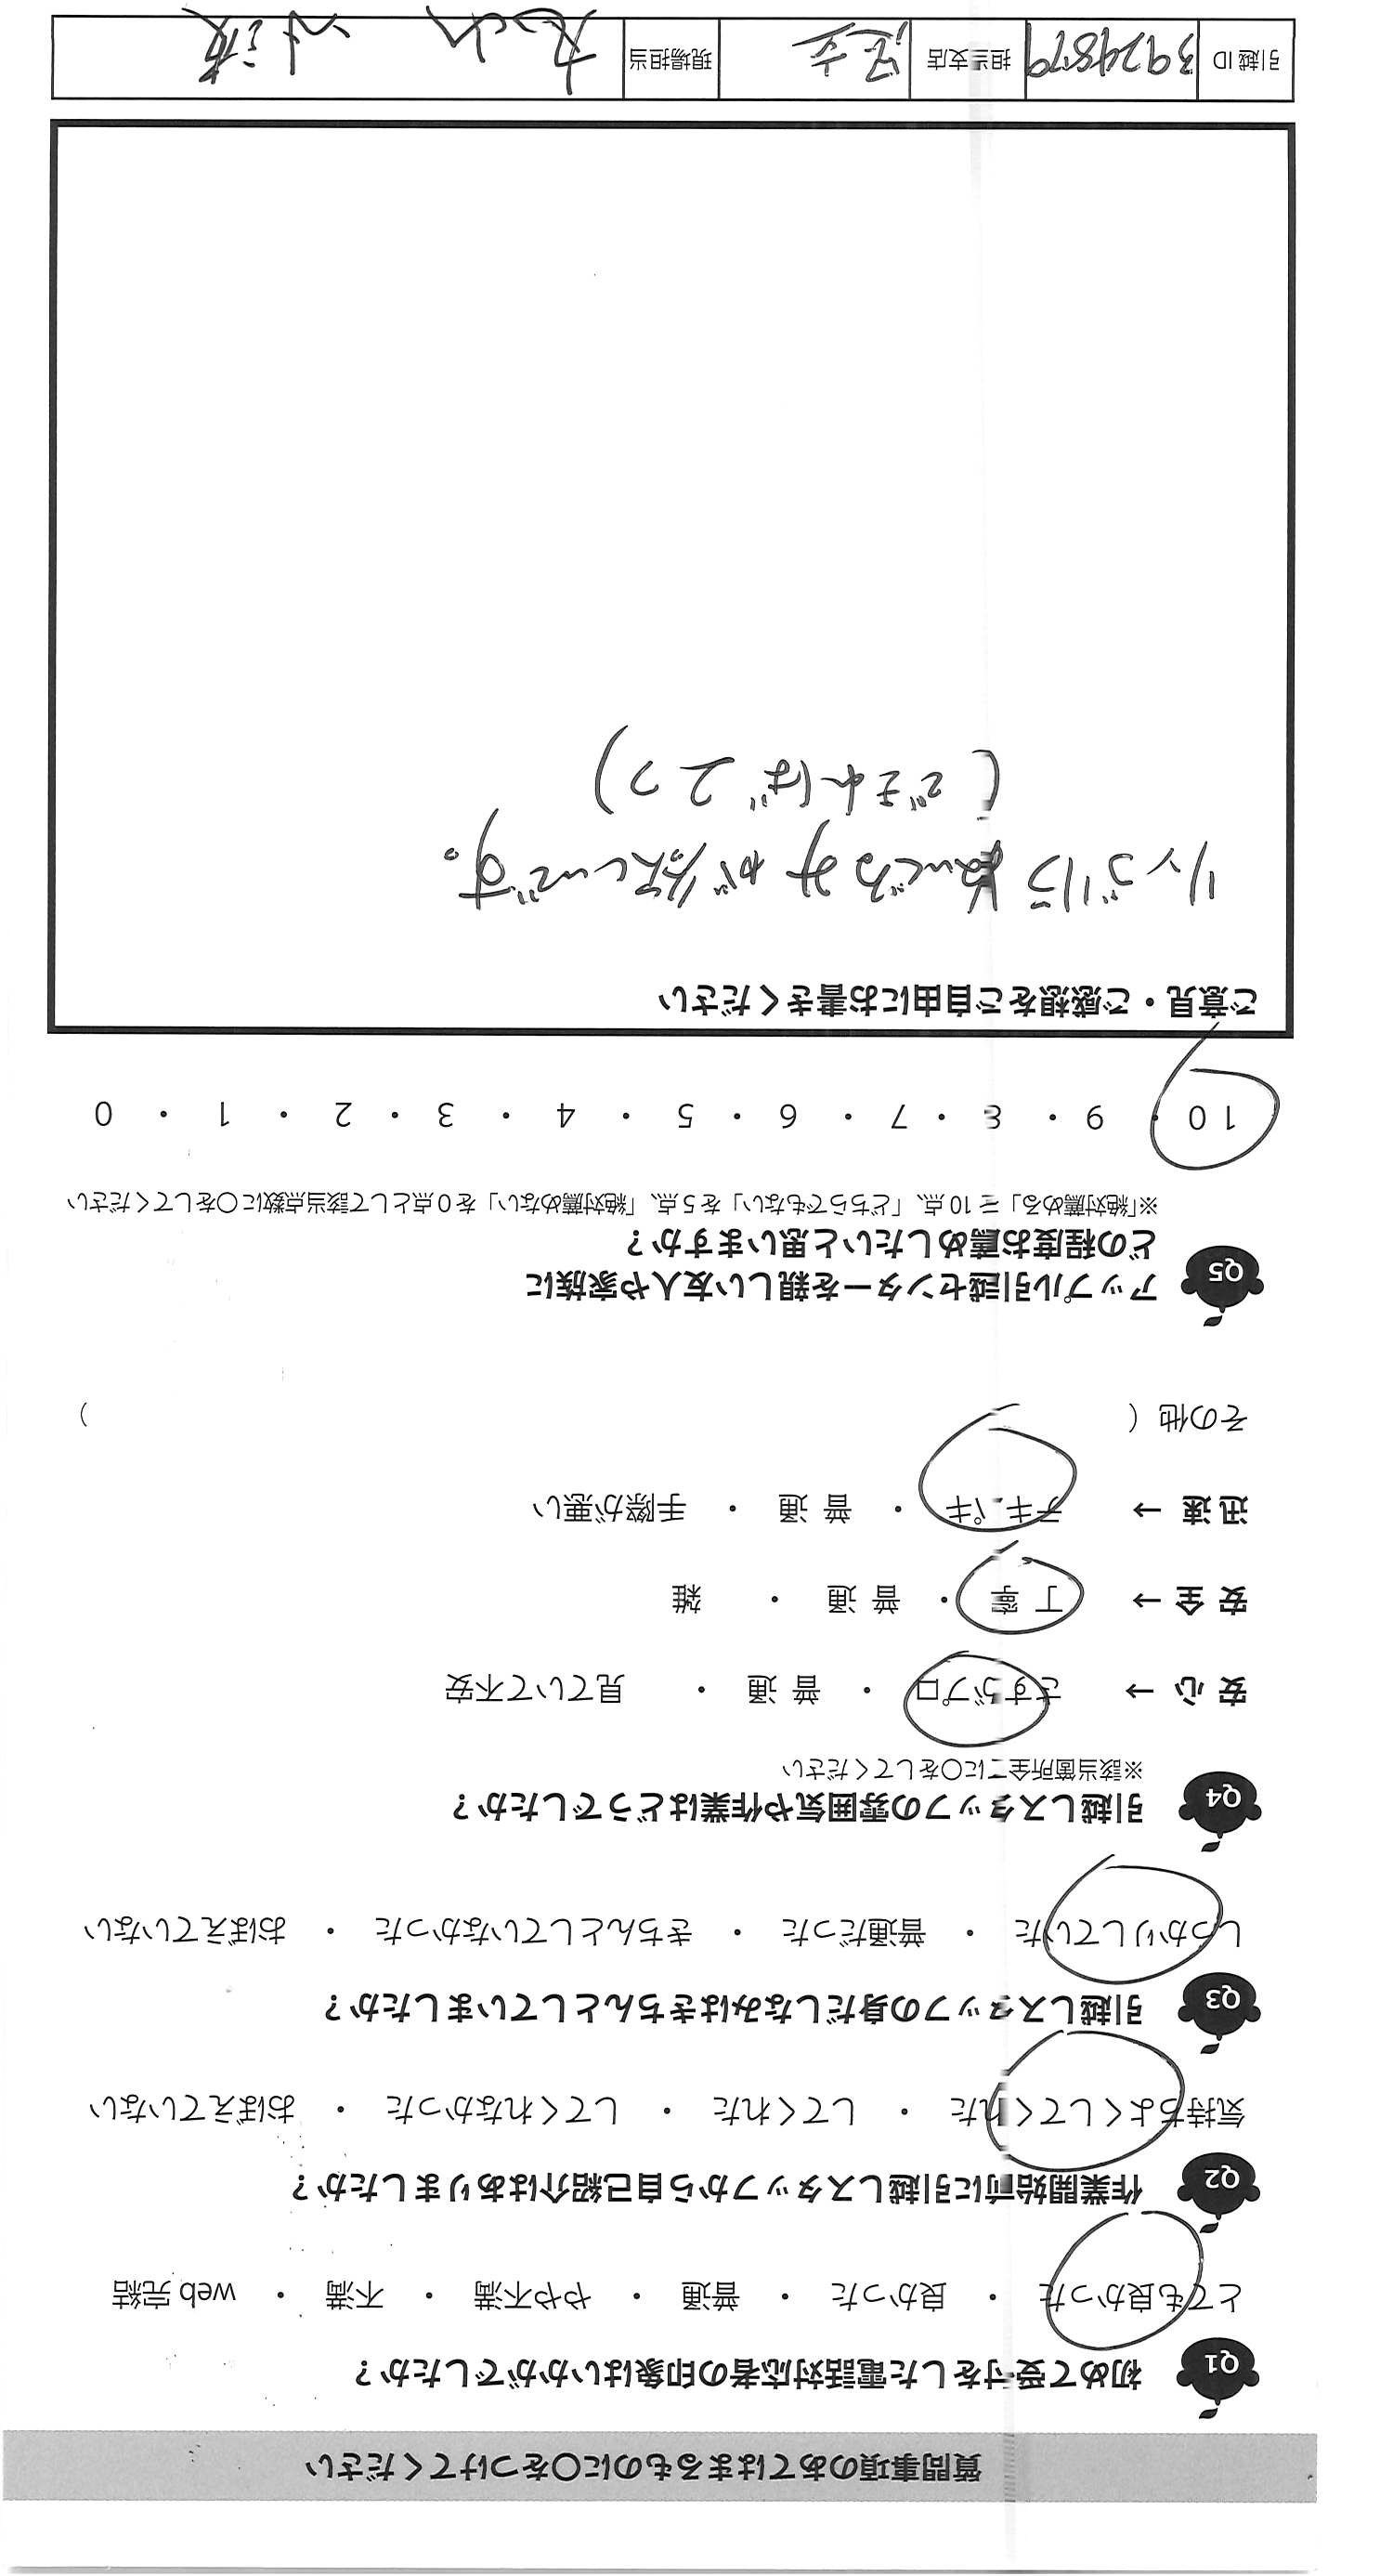 質問事項のあてはまるものに○をつけてください
Q1 初めて受付をした電話対応者の印象はいかがでしたか？
とても良かった ・ 良かった ・ 普通 ・ やや不満 ・ 不満 ・ web 完結
Q2 作業開始前に引越しスタッフから自己紹介はありましたか？
気持ちよくしてくれた ・ してくれた ・ してくれなかった ・ おぼえていない
Q3 引越しスタッフの身だしなみはきちんとしていましたか？
しっかりしていた ・ 普通だった ・ きちんとしていなかった ・ おぼえていない
Q4 引越しスタッフの雰囲気や作業はどうでしたか？
※該当箇所全てに○をしてください
安心 → さすがプロ ・ 普通 ・ 見ていて不安
安全 → 丁寧 ・ 普通 ・ 雑
迅速 → テキパキ ・ 普通 ・ 手際が悪い
その他 ( )
Q5 アップル引越センターを親しい友人や家族に
どの程度お薦めしたいと思いますか？
※「絶対薦める」を10点、「どちらでもない」を5点、「絶対薦めない」を0点として該当点数に○をしてください
10 ・ 9 ・ 8 ・ 7 ・ 6 ・ 5 ・ 4 ・ 3 ・ 2 ・ 1 ・ 0
ご意見・ご感想をご自由にお書きください
リンゴリラぬいぐるみが欲しいです。
(できれば2つ)
引越ID 3924879 担当支店 現場担当